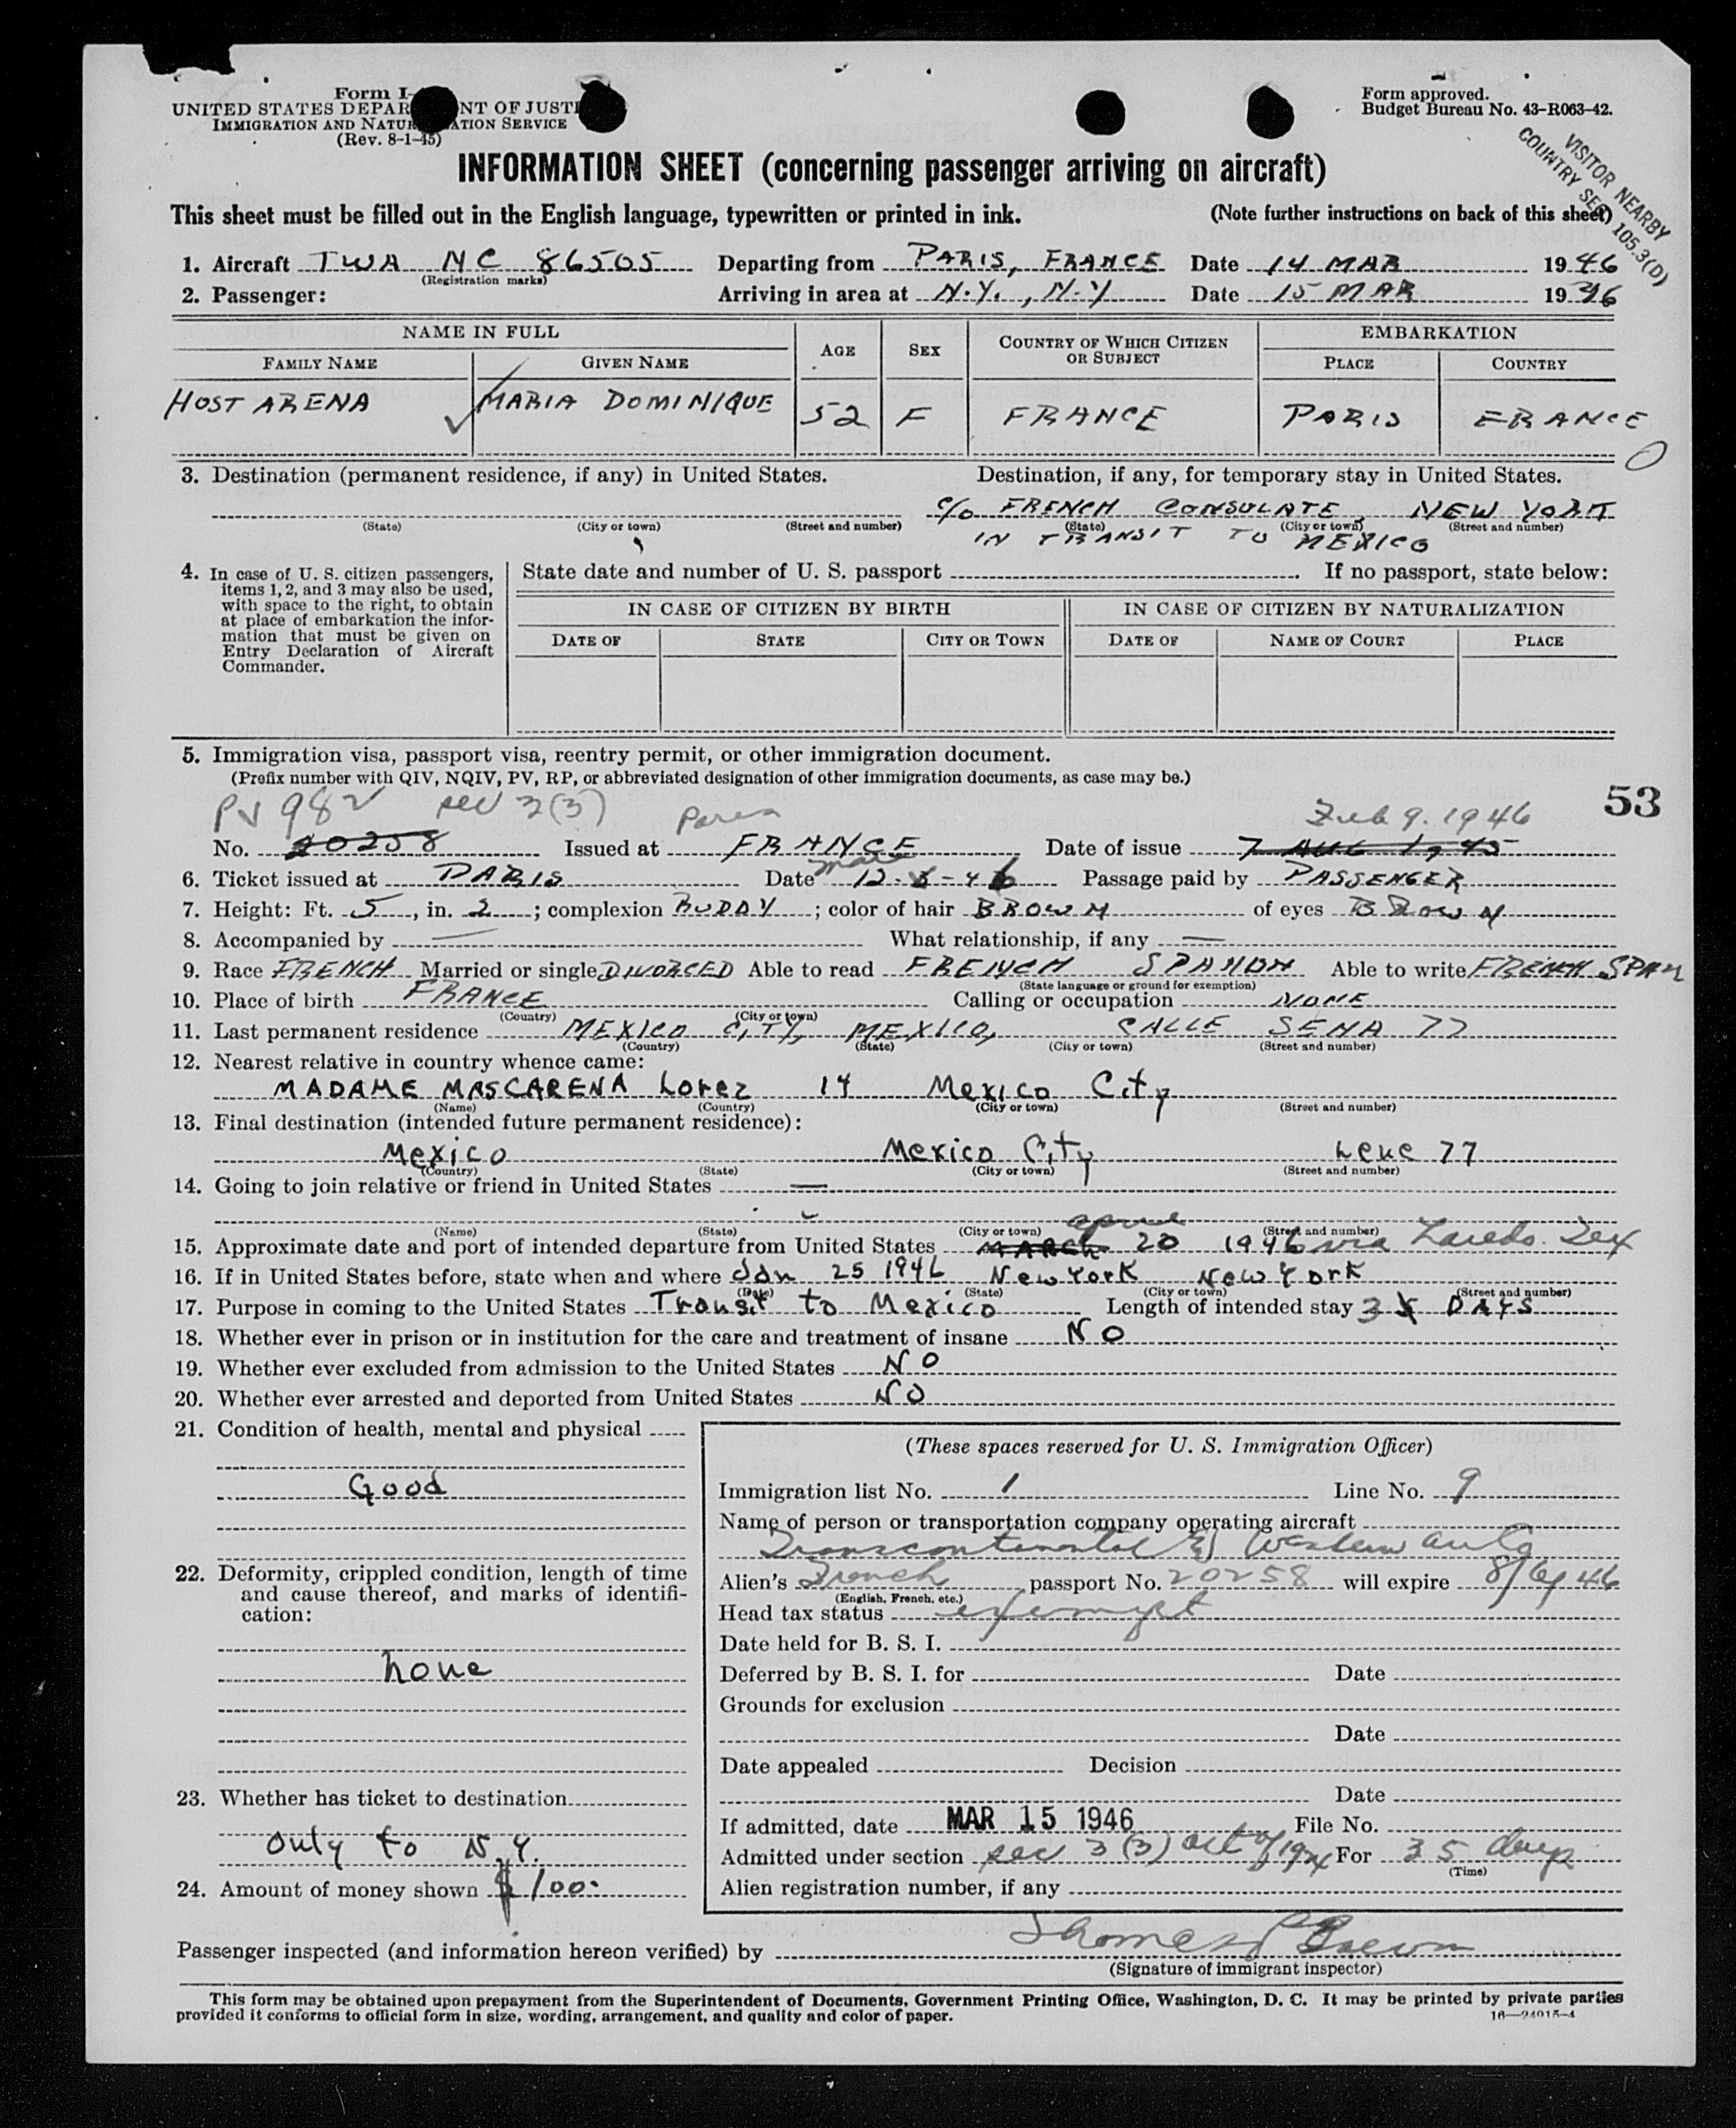 Form I-
UNITED STATES DEPAR NT OF JUSTI
IMMIGRATION AND NATUR ATION SERVICE
(Rev. 8-1-45)
Form approved.
Budget Bureau No. 43-R063-42.
VISITOR NEARBY
COUNTRY SEC. 105.3(D)
INFORMATION SHEET (concerning passenger arriving on aircraft)
This sheet must be filled out in the English language, typewritten or printed in ink. (Note further instructions on back of this sheet)
1. Aircraft TWA NC 86505 Departing from PARIS, FRANCE Date 14 MAR 1946
(Registration marks)
2. Passenger: Arriving in area at N.Y., N.Y Date 15 MAR 1946
NAME IN FULL AGE SEX COUNTRY OF WHICH CITIZEN OR SUBJECT EMBARKATION
FAMILY NAME GIVEN NAME PLACE COUNTRY
HOSTARENA MARIA DOMINIQUE 52 F FRANCE PARIS FRANCE
3. Destination (permanent residence, if any) in United States. Destination, if any, for temporary stay in United States.
c/o FRENCH CONSULATE, NEW YORK
(State) (City or town) (Street and number) (State) (City or town) (Street and number)
IN TRANSIT TO MEXICO
4. In case of U. S. citizen passengers, items 1, 2, and 3 may also be used, with space to the right, to obtain at place of embarkation the information that must be given on Entry Declaration of Aircraft Commander.
State date and number of U. S. passport . If no passport, state below:
IN CASE OF CITIZEN BY BIRTH IN CASE OF CITIZEN BY NATURALIZATION
DATE OF STATE CITY OR TOWN DATE OF NAME OF COURT PLACE
5. Immigration visa, passport visa, reentry permit, or other immigration document.
(Prefix number with QIV, NQIV, PV, RP, or abbreviated designation of other immigration documents, as case may be.)
53
PV 982 sec 3(3) Paris Feb 9. 1946
No. 20258 Issued at FRANCE Date of issue 7 AUG 1945
6. Ticket issued at PARIS Date Mar 12-46 Passage paid by PASSENGER
7. Height: Ft. 5, in. 2; complexion RUDDY; color of hair BROWN of eyes BROWN
8. Accompanied by — What relationship, if any —
9. Race FRENCH Married or single DIVORCED Able to read FRENCH SPANISH Able to write FRENCH SPAN
(State language or ground for exemption)
10. Place of birth FRANCE Calling or occupation NONE
(Country) (City or town)
11. Last permanent residence MEXICO CITY, MEXICO, CALLE SENA 77
(Country) (State) (City or town) (Street and number)
12. Nearest relative in country whence came:
MADAME MASCARENA Lopez 14 Mexico City
(Name) (Country) (City or town) (Street and number)
13. Final destination (intended future permanent residence):
Mexico Mexico City 77
(Country) (State) (City or town) (Street and number)
14. Going to join relative or friend in United States —
(Name) (State) (City or town) (Street and number)
April
15. Approximate date and port of intended departure from United States MARCH 20 1946 via Laredo. Tex
16. If in United States before, state when and where Jan 25 1946 New York New York
(Date) (State) (City or town) (Street and number)
17. Purpose in coming to the United States Transit to Mexico Length of intended stay 35 DAYS
18. Whether ever in prison or in institution for the care and treatment of insane NO
19. Whether ever excluded from admission to the United States NO
20. Whether ever arrested and deported from United States NO
21. Condition of health, mental and physical
Good
22. Deformity, crippled condition, length of time and cause thereof, and marks of identification:
none
23. Whether has ticket to destination
only to N.Y.
24. Amount of money shown $100.
(These spaces reserved for U. S. Immigration Officer)
Immigration list No. 1 Line No. 9
Name of person or transportation company operating aircraft
Transcontinental & Western Air Co
Alien's French passport No. 20258 will expire 8/6/46
(English, French, etc.)
Head tax status exempt
Date held for B. S. I.
Deferred by B. S. I. for Date
Grounds for exclusion
Date
Date appealed Decision
Date
If admitted, date MAR 15 1946 File No.
Admitted under section sec 3 (3) act of 1924 For 35 days
(Time)
Alien registration number, if any
Passenger inspected (and information hereon verified) by Thomas P Brown
(Signature of immigrant inspector)
This form may be obtained upon prepayment from the Superintendent of Documents, Government Printing Office, Washington, D. C. It may be printed by private parties
provided it conforms to official form in size, wording, arrangement, and quality and color of paper. 16—24015-4